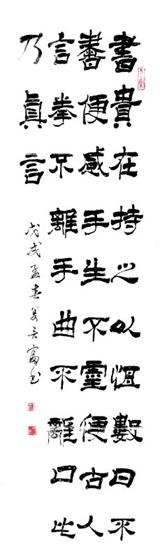 書貴在持之以恒數日不
書便感手生不靈便古人
言拳不離手曲不離口此
乃真言
戊戌孟春